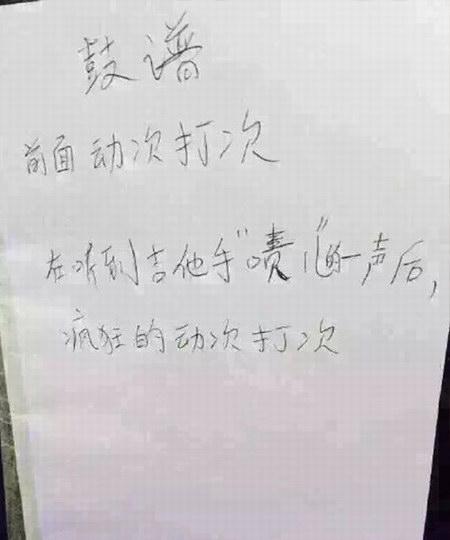 鼓谱
前面动次打次
在听到吉他手"啧!"的一声后,
疯狂的动次打次